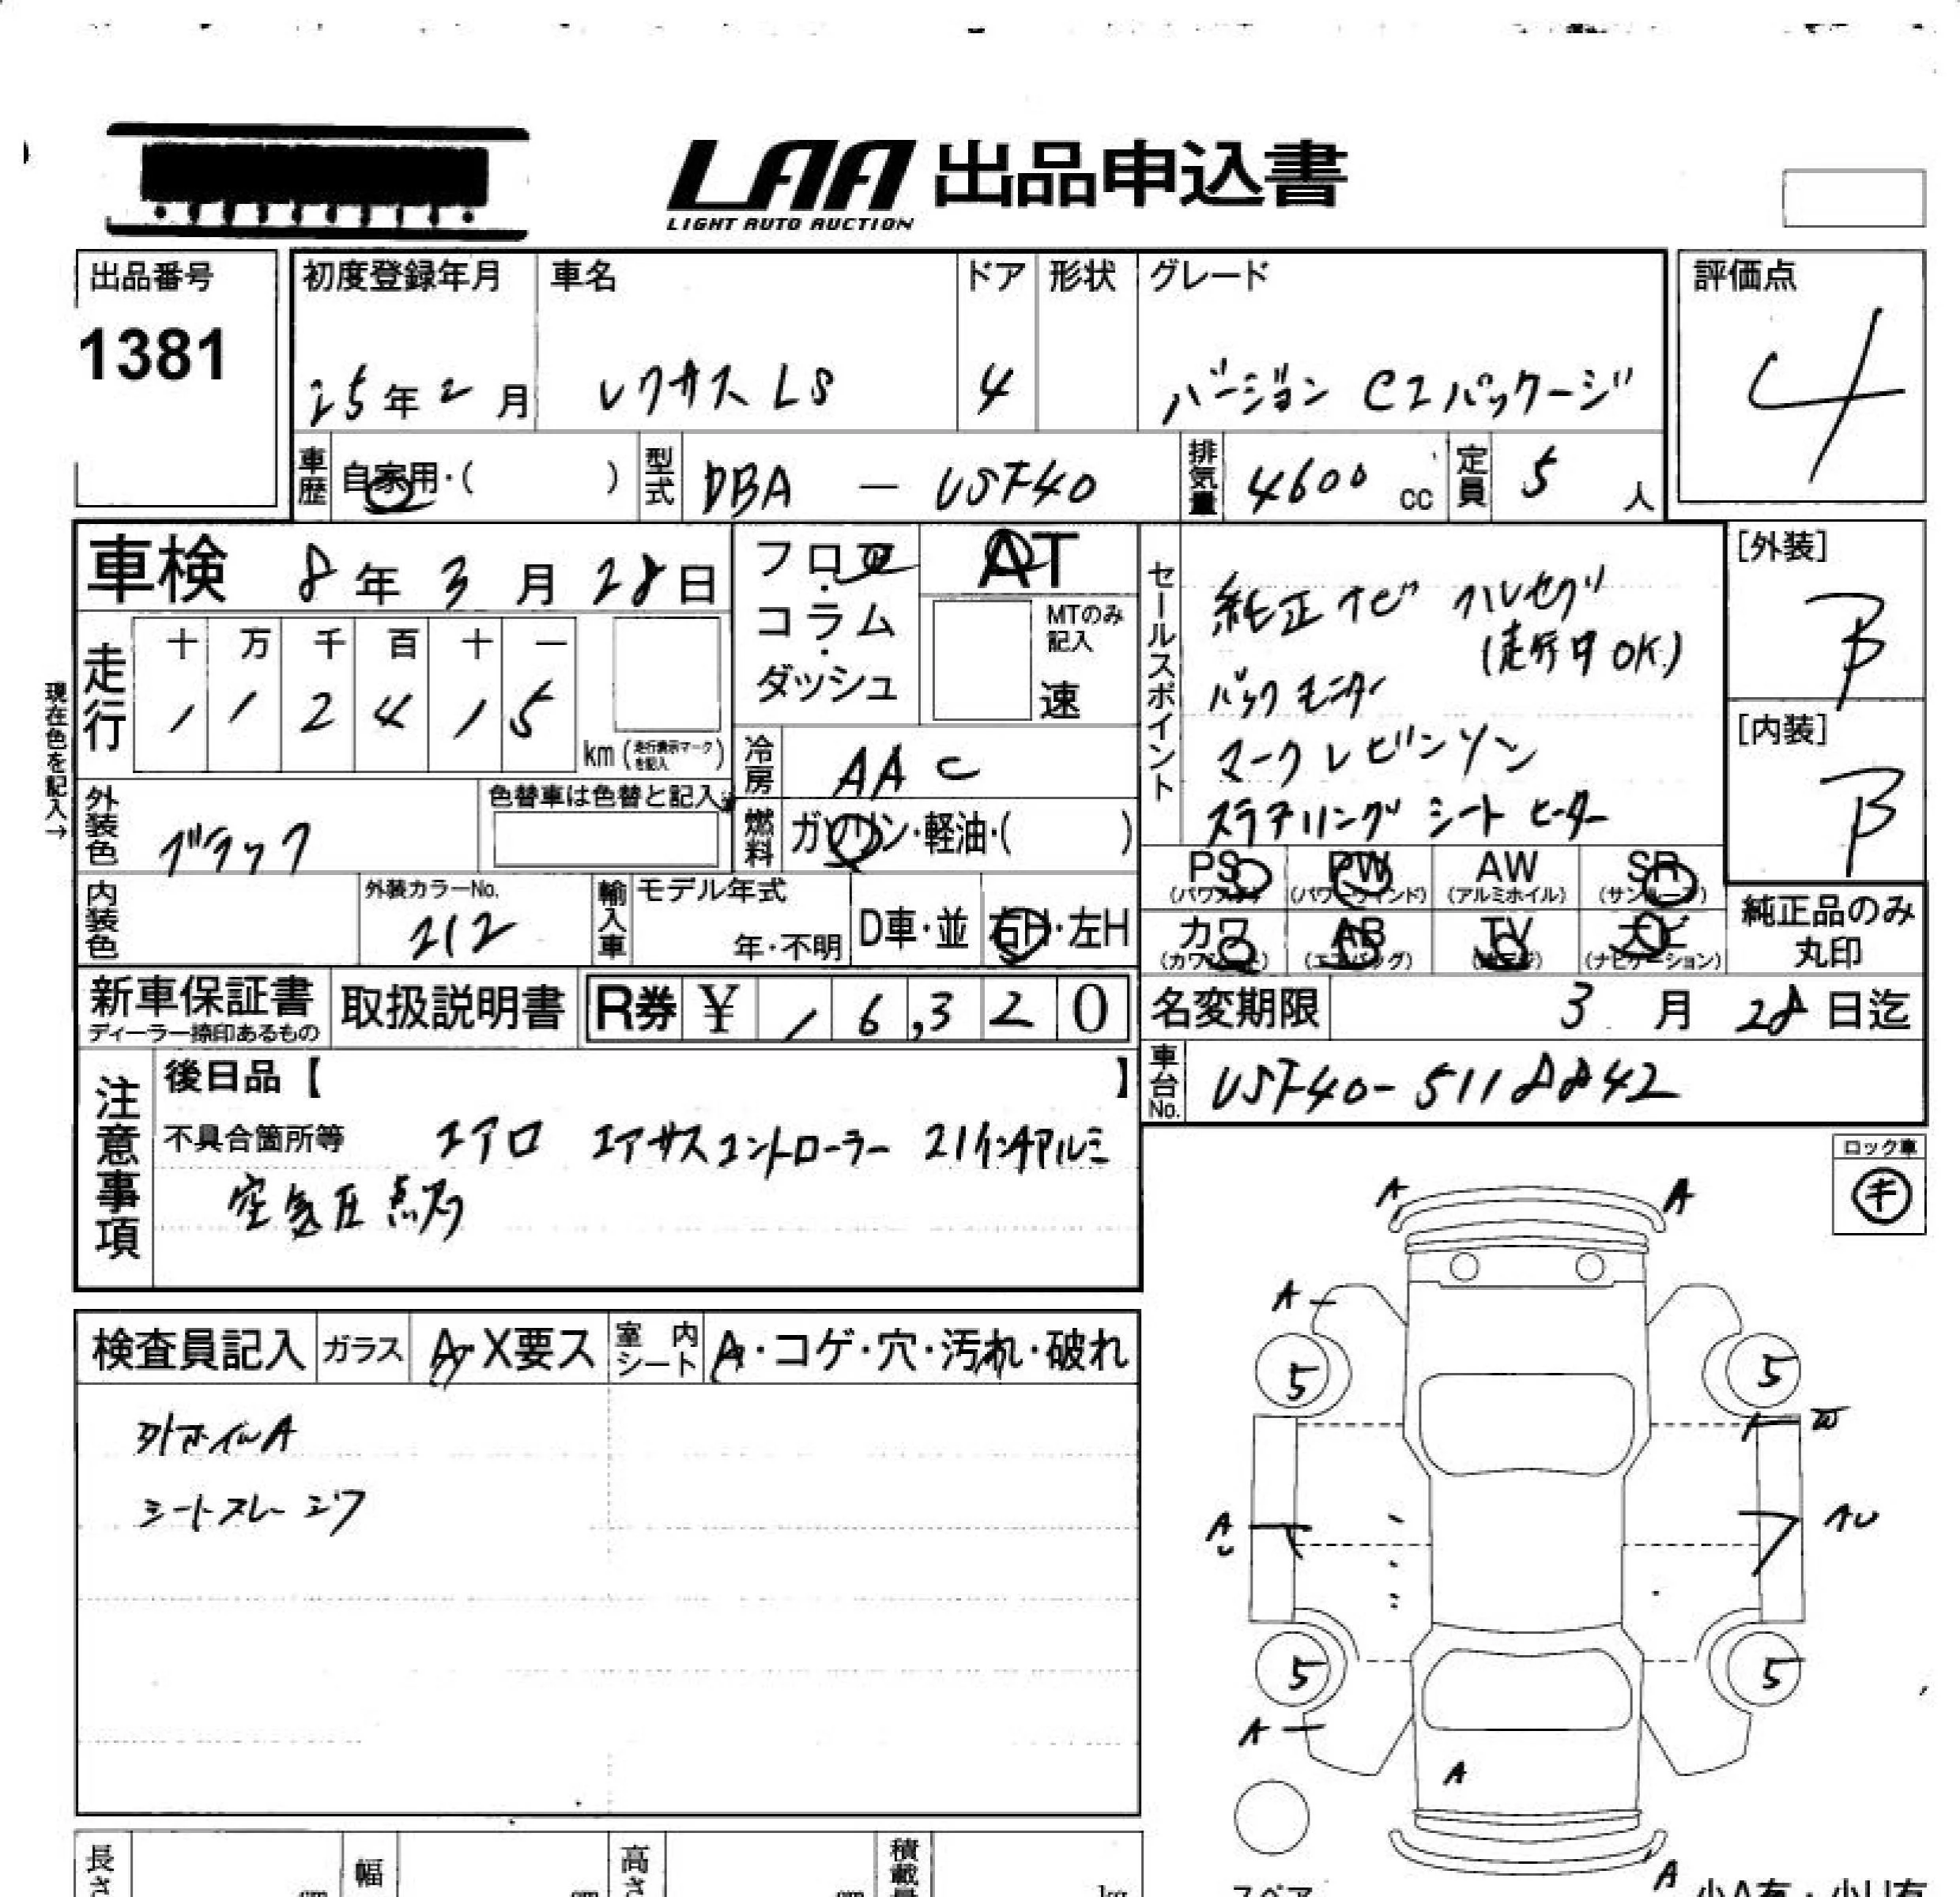 LAA 出品申込書
LIGHT AUTO AUCTION
出品番号
1381
初度登録年月 車名 ドア 形状 グレード
25年2月 レクサスLS 4 バージョン CIパッケージ
評価点
4
車歴 自家用・( ) 型式 DBA - USF40 排気量 4600 cc 定員 5 人
車検 8年3月28日
フロア・コラム・ダッシュ
AT
MTのみ記入
速
セールスポイント
純正ナビ フルセグ
(走行中OK)
バックモニター
マークレビンソン
ステアリング シートヒーター
[外装]
B
[内装]
B
現在色を記入→
走行
十 万 千 百 十 一
1 1 2 4 1 5
km (走行表示マークを記入)
冷房 AAC
外装色 ブラック
色替車は色替と記入
燃料 ガソリン・軽油・( )
PS PW AW SR
(パワステ) (パワーウィンド) (アルミホイル) (サンルーフ)
カワ AB TV ナビ
(カワシート) (エアバッグ) (ナビゲーション)
純正品のみ
丸印
内装色
外装カラーNo.
212
輸入車 モデル年式
年・不明
D車・並 右H・左H
新車保証書
ディーラー捺印あるもの
取扱説明書
R券 ¥ 16,320
名変期限 3月28日迄
車台No. USF40-5118842
注意事項
後日品【 】
不具合箇所等 エアロ エアサスコントローラー 21インチアルミ
空気圧点灯
ロック車
キ
検査員記入 ガラス A・X要ス 室内シート A・コゲ・穴・汚れ・破れ
外ホイルA
シートスレ シワ
A A
A
5 5
W
A AU
5 5
A
A
A
長さ 幅 高さ 積載量
cm cm cm kg
スペア
小A有・小U有